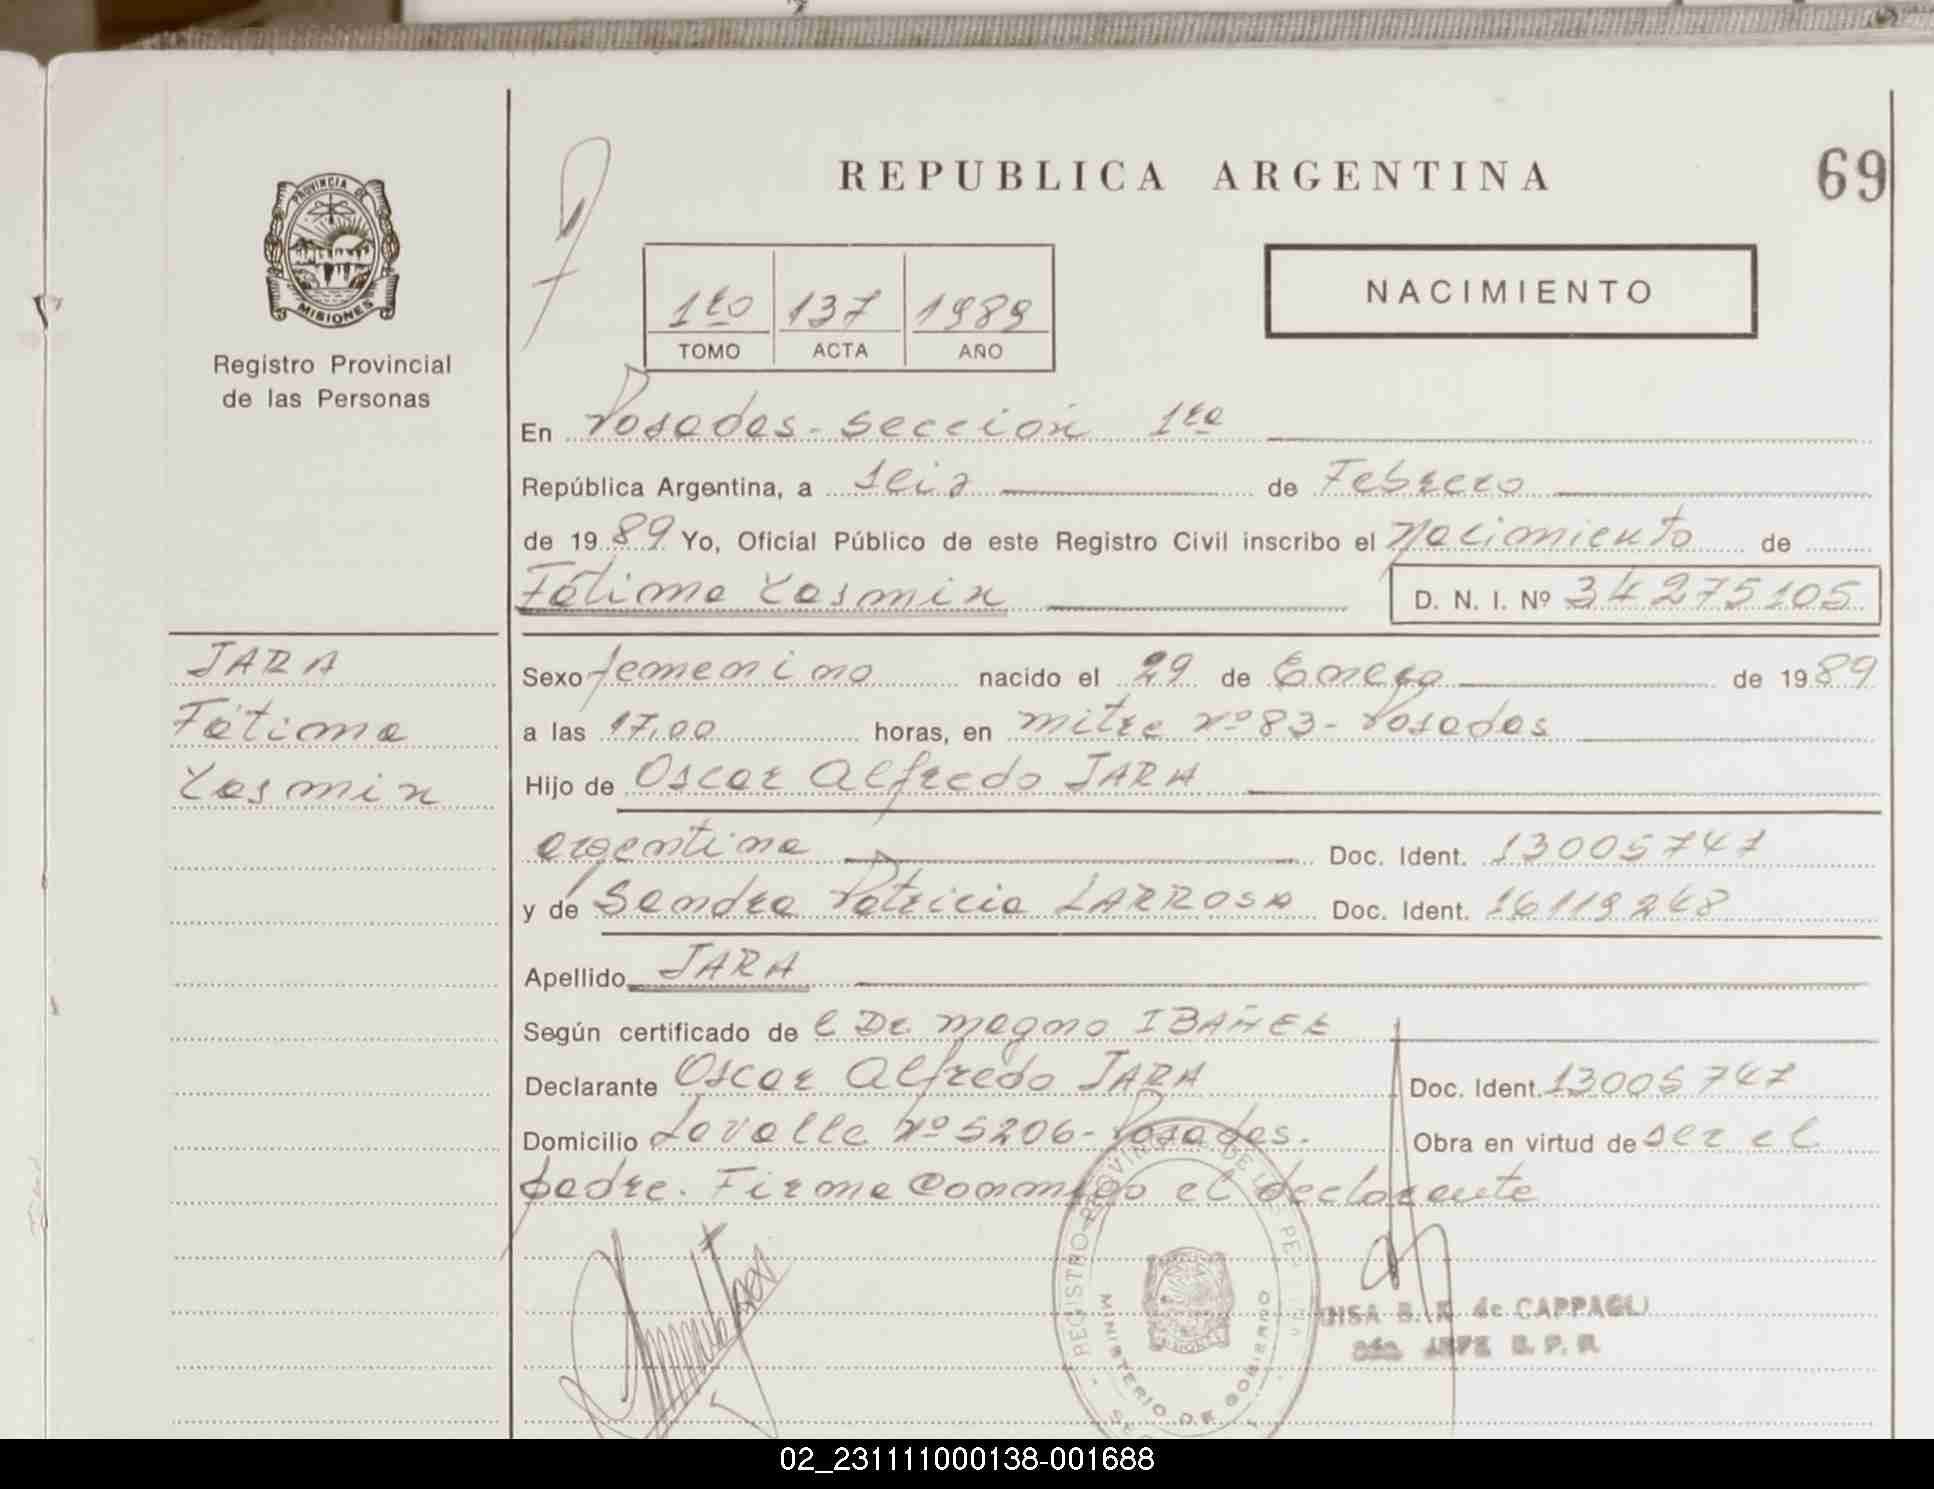 REPUBLICA ARGENTINA
69
PROVINCIA DE
MISIONES
Registro Provincial
de las Personas
NACIMIENTO
1ro 137 1989
TOMO ACTA AÑO
En Posadas - sección 1ra
República Argentina, a seis de Febrero
de 1989 Yo, Oficial Público de este Registro Civil inscribo el Nacimiento de
Fátima Yasmin D. N. I. Nº 34275105
JARA
Fátima
Yasmin
Sexo femenino nacido el 29 de Enero de 1989
a las 17,00 horas, en mitre nº 83 - Posadas
Hijo de Oscar Alfredo JARA
argentino Doc. Ident. 13005747
y de Sandra Patricia LARROSA Doc. Ident. 16119248
Apellido JARA
Según certificado de el Dr. magno IBAÑEZ
Declarante Oscar Alfredo JARA Doc. Ident. 13005747
Domicilio Lavalle nº 5206 - Posadas. Obra en virtud de ser el
padre. Firma Conmigo el declarante
REGISTRO PROVINCIAL DE LAS PERSONAS
MINISTERIO DE GOBIERNO
de CAPPAGLI
JEFE R. P. P.
02_231111000138-001688